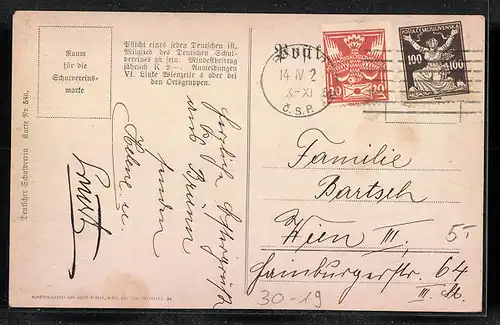 Raum
für die
Schulvereins-
marke
Pflicht eines jeden Deutschen ist,
Mitglied des Deutschen Schul-
vereines zu sein. Mindestbeitrag
jährlich K 2.—. Anmeldungen
VI. Linke Wienzeile 4 oder bei
den Ortsgruppen.
Deutscher Schulverein Karte Nr. 584.
Herzliche Ostergrüße
aus Brünn
senden
u.
Post
14 IV 2
X-XI
Č.S.P.
20 20
POŠTA ČESKOSLOVENSKÁ
100 100
Familie
Bartsch
Wien III.
Hainburgerstr. 64
III. St.
5-
30-19